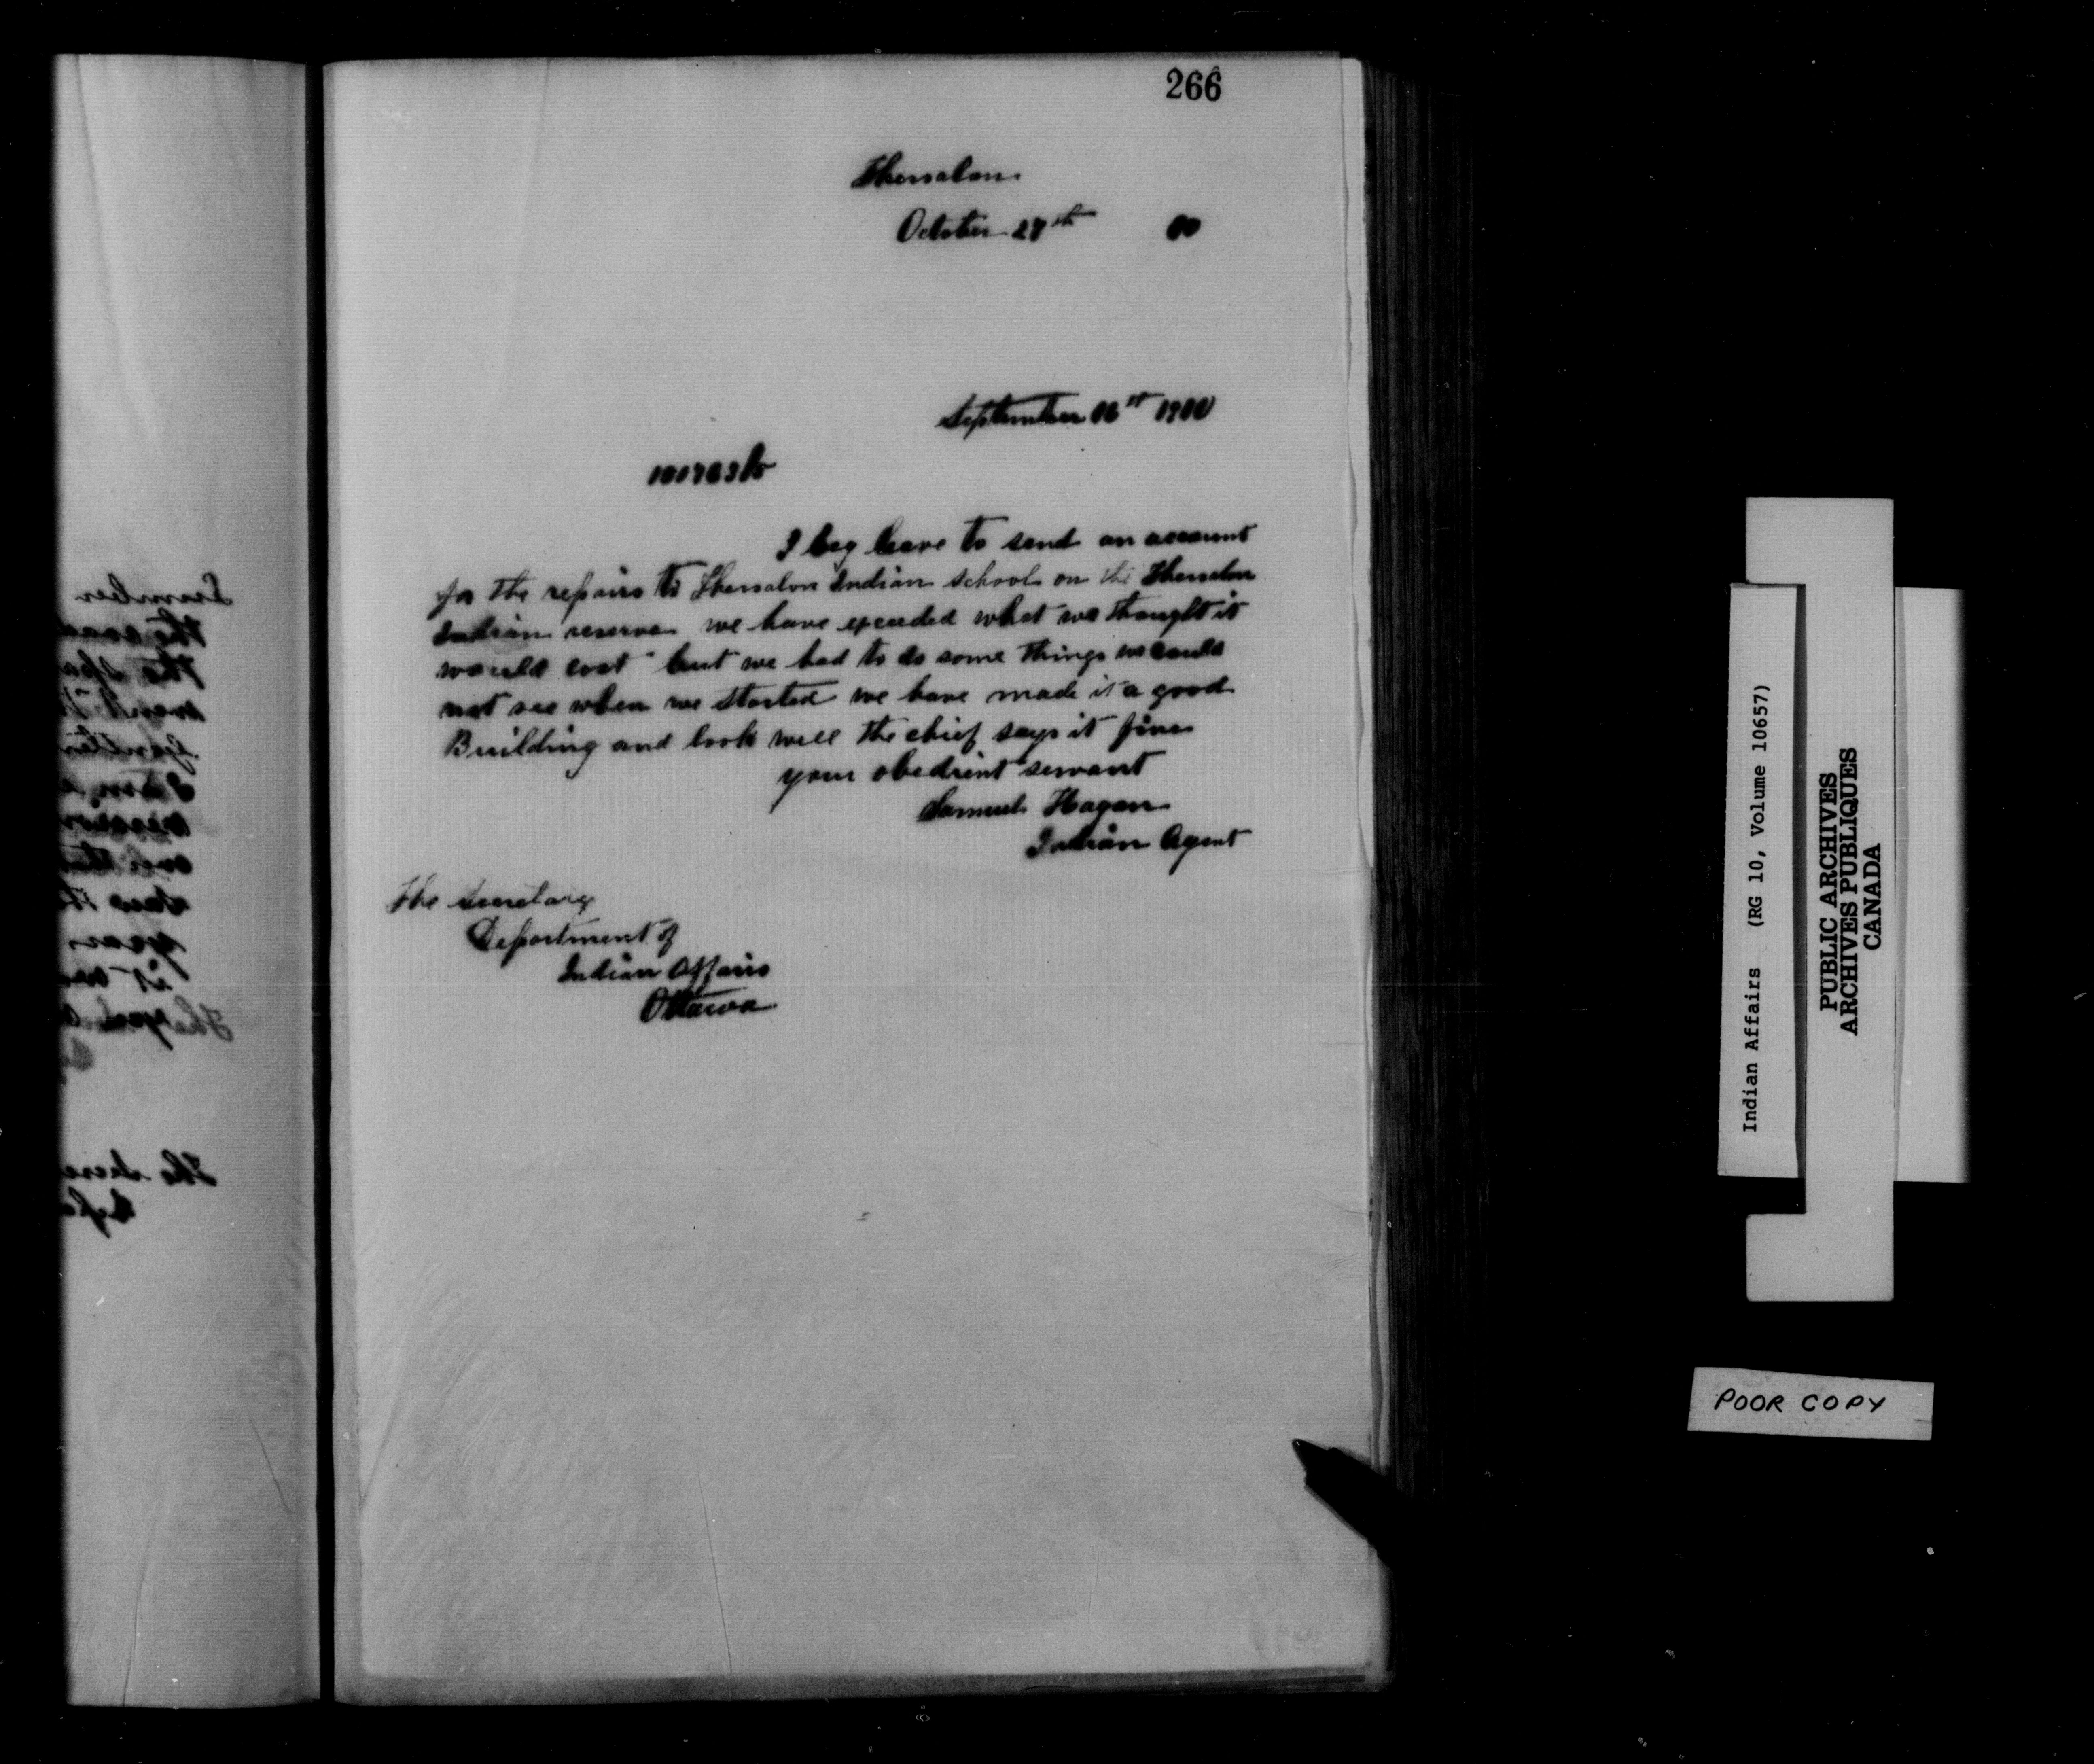 266
Thessalon
October 27th 00
September 1900
I beg leave to send an account
for the repairs to Thessalon Indian school on the Thessalon
Indian reserve we have exceeded what we thought it
would cost but we had to do some things we could
not see when we started we have made it a good
Building and look well the chief says it fine
your obedient servant
Samuel Hagan
Indian Agent
The Secretary
Department of
Indian Affairs
Ottawa
Indian Affairs (RG 10, Volume 10657)
PUBLIC ARCHIVES
ARCHIVES PUBLIQUES
CANADA
POOR COPY